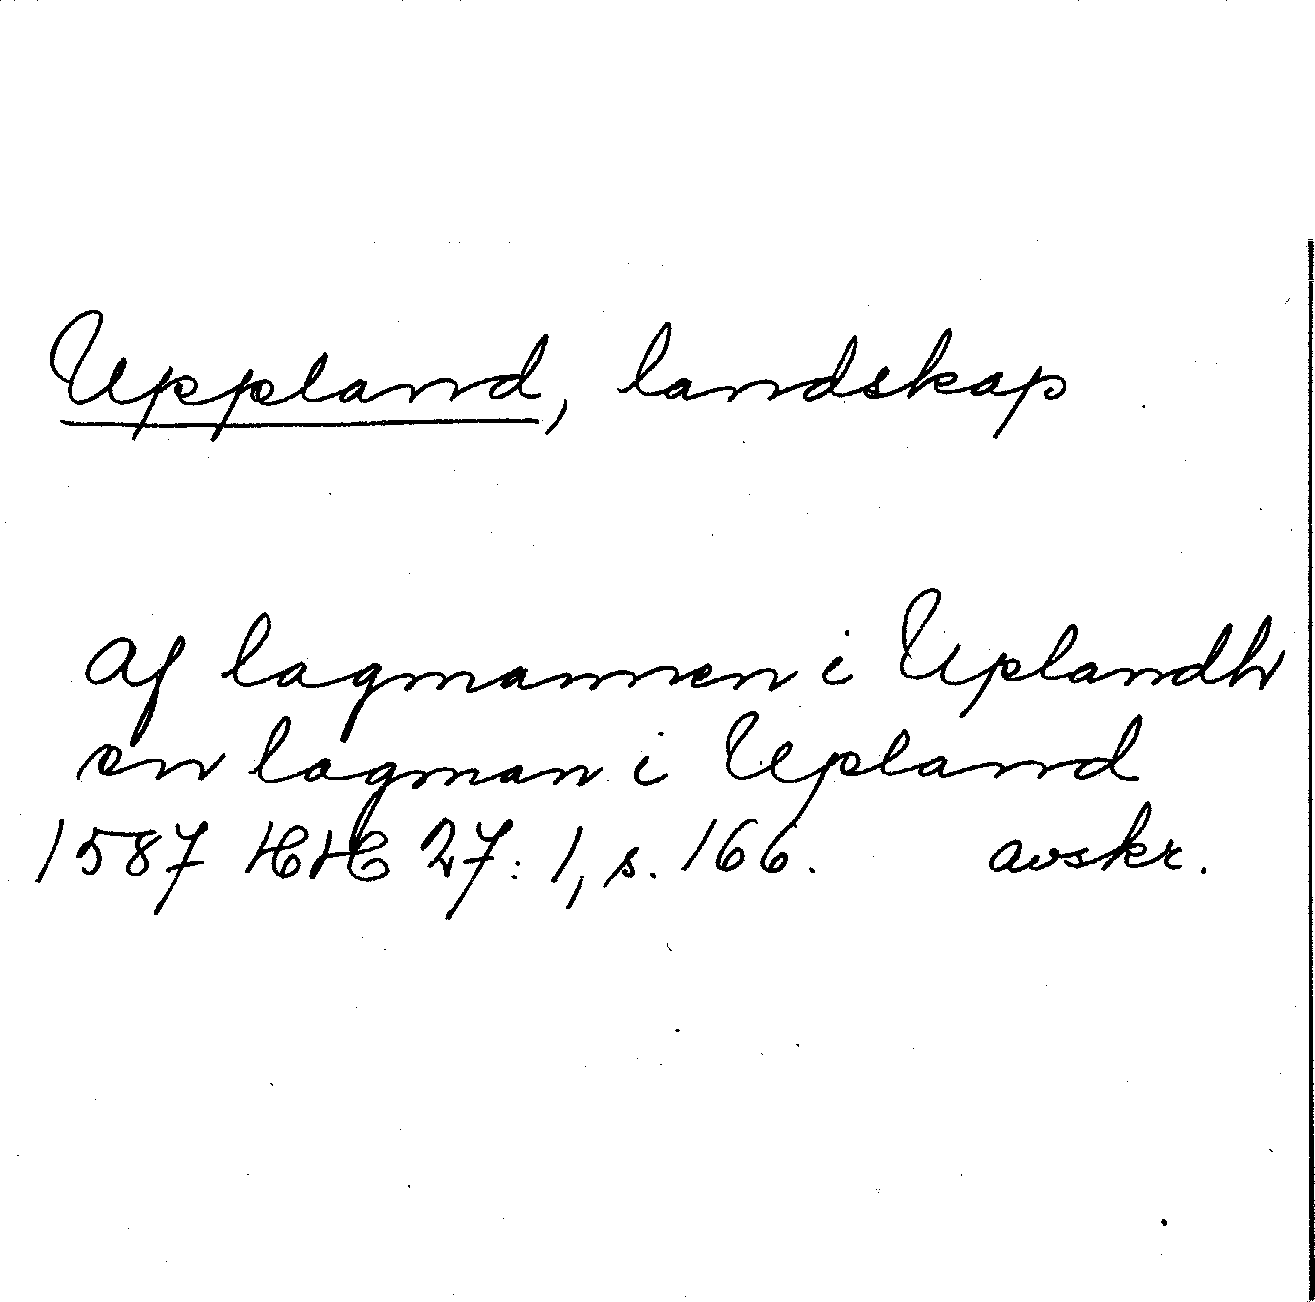 Uppland, landskap
Af lagmannen i Uplandh
en lagman i Upland
1587 HH 27:1, s. 166. avskr.